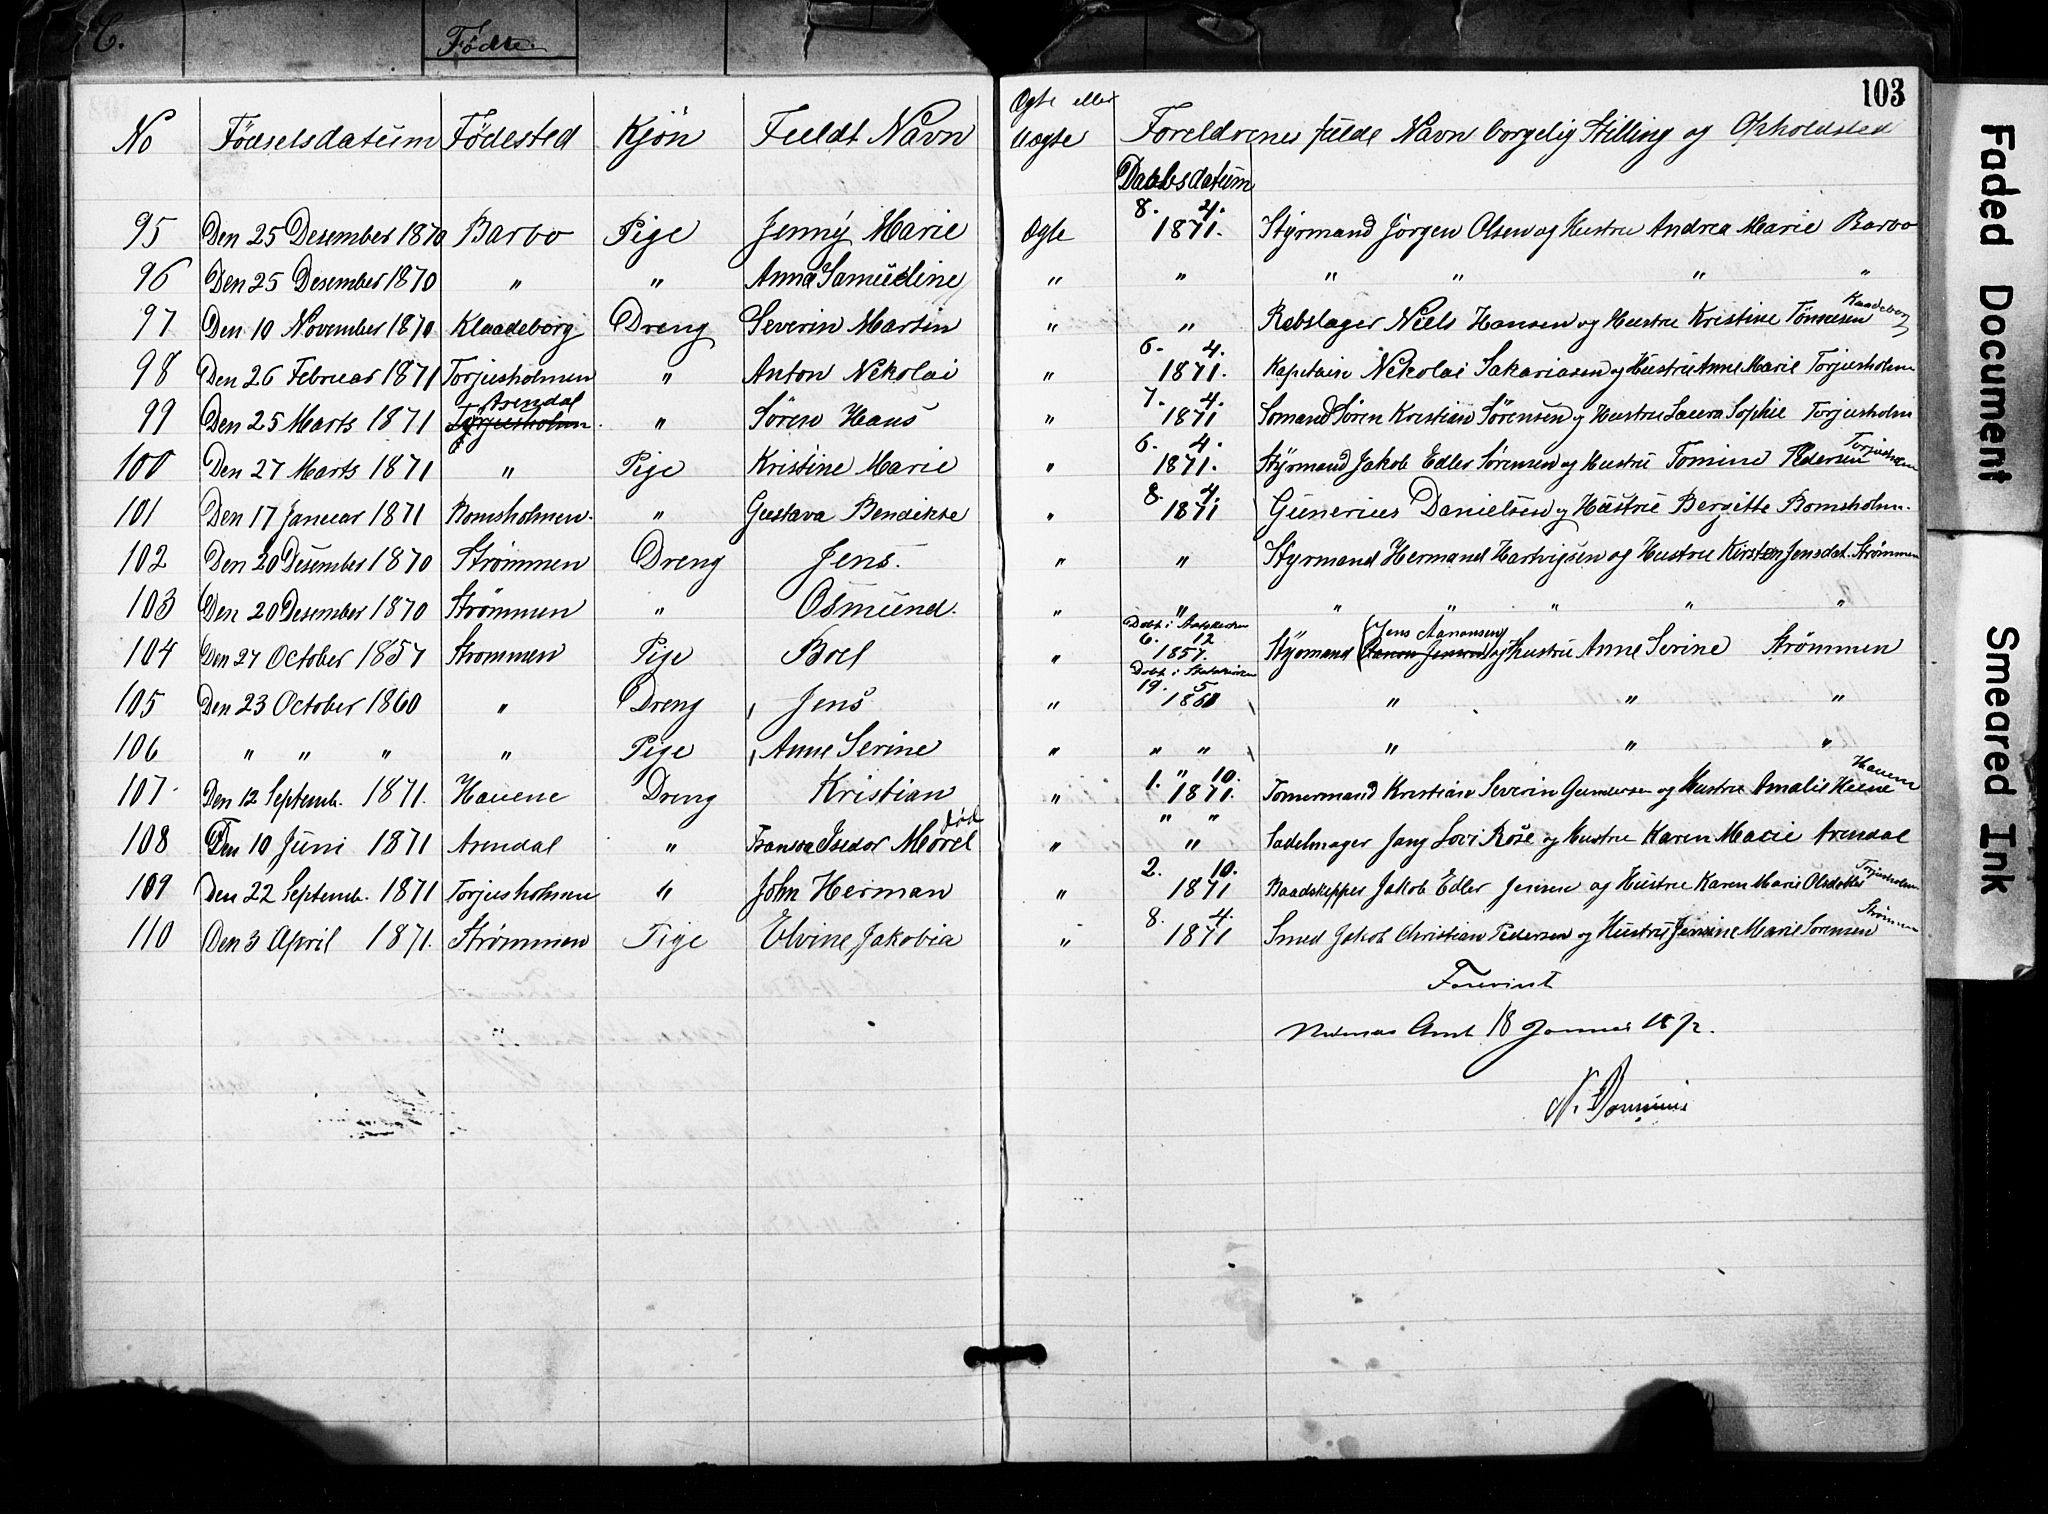 C.
Fødte
103
No Fødselsdatum Fødested Kjøn Fuldt Navn Ogte eller Uogte Foreldrenes fulde Navn borgelig Stilling og Opholdsted
Daabsdatum
95 Den 25 Desember 1870 Barbo Pige Jenny Marie Ogte 8. 4. 1871. Styrmand Jørgen Olsen og Hustru Andrea Marie Barbo
96 Den 25 Desember 1870 " " Anna Samueline " " " " " "
97 Den 10 November 1870 Klaadeborg Dreng Severin Martin " " Rebslager Niels Hansen og Hustru Kristine Tønnesen Kaadeborg
98 Den 26 Februar 1871 Torjusholmen " Anton Nekolai " 6. 4. 1871. Kaptain Nekolai Sakariasen og Hustru Anne Marie Torjusholm
99 Den 25 Marts 1871 Arendal Torjusholmen " Søren Hans " 7. 4. 1871 Somand Søren Kristian Sørensen og Hustru Laura Sophie Torjusholm
100 Den 27 Marts 1871 " Pige Kristine Marie " 6. 4. 1871. Styrmand Jakob Edler Sørensen og Hustru Tomine Pedersen Torjusholm
101 Den 17 Januar 1871 Romsholmen. " Gustava Bendikte " 8. 4. 1871 Gunerius Danielsen og Hustru Bergitte Romsholm.
102 Den 20 Desember 1870 Strømmen Dreng Jens. " " Styrmand Hermand Hartvigsen og Hustru Kirsten Jensdat. Strømmen
103 Den 20 Desember 1870 Strømmen " Osmund. " " " " " " "
104 Den 27 October 1857 Strommen Pige Boel " Dobt i 6. 12 1857. Styrmand (Jens Aanonsen) Aanon Jensen og Hustru Anne Serine Strømmen
105 Den 23 October 1860 " Dreng Jens " Dobt i 19. 5 1861 " " "
106 " " " " Pige Anne Serine " " " " " "
107 Den 12 Septemb. 1871. Hauene Dreng Kristian " 1. " 10. 1871. Tømermand Kristian Severin Gundersen og Hustru Amalie Hauene
108 Den 10 Juni 1871 Arendal " Fransoa Isedor Morel død " " " " Sadelmager Jang Lovi Rose og Hustru Karen Marie Arendal
109 Den 22 Septemb. 1871 Torjusholmen " John Herman " 2. 10. 1871 Baadskipper Jakob Edler Jensen og Hustru Karen Marie Olsdatter Torjusholm
110 Den 3 April 1871. Strømmen Pige Elvine Jakobia " 8. 4. 1871 Smed Jakob Christian Pedersen og Hustru Jensine Marie Sorensen Strømmen
Forevist
Nedenæs Amt 18 Januar 1872.
Faded Document
Smeared Ink